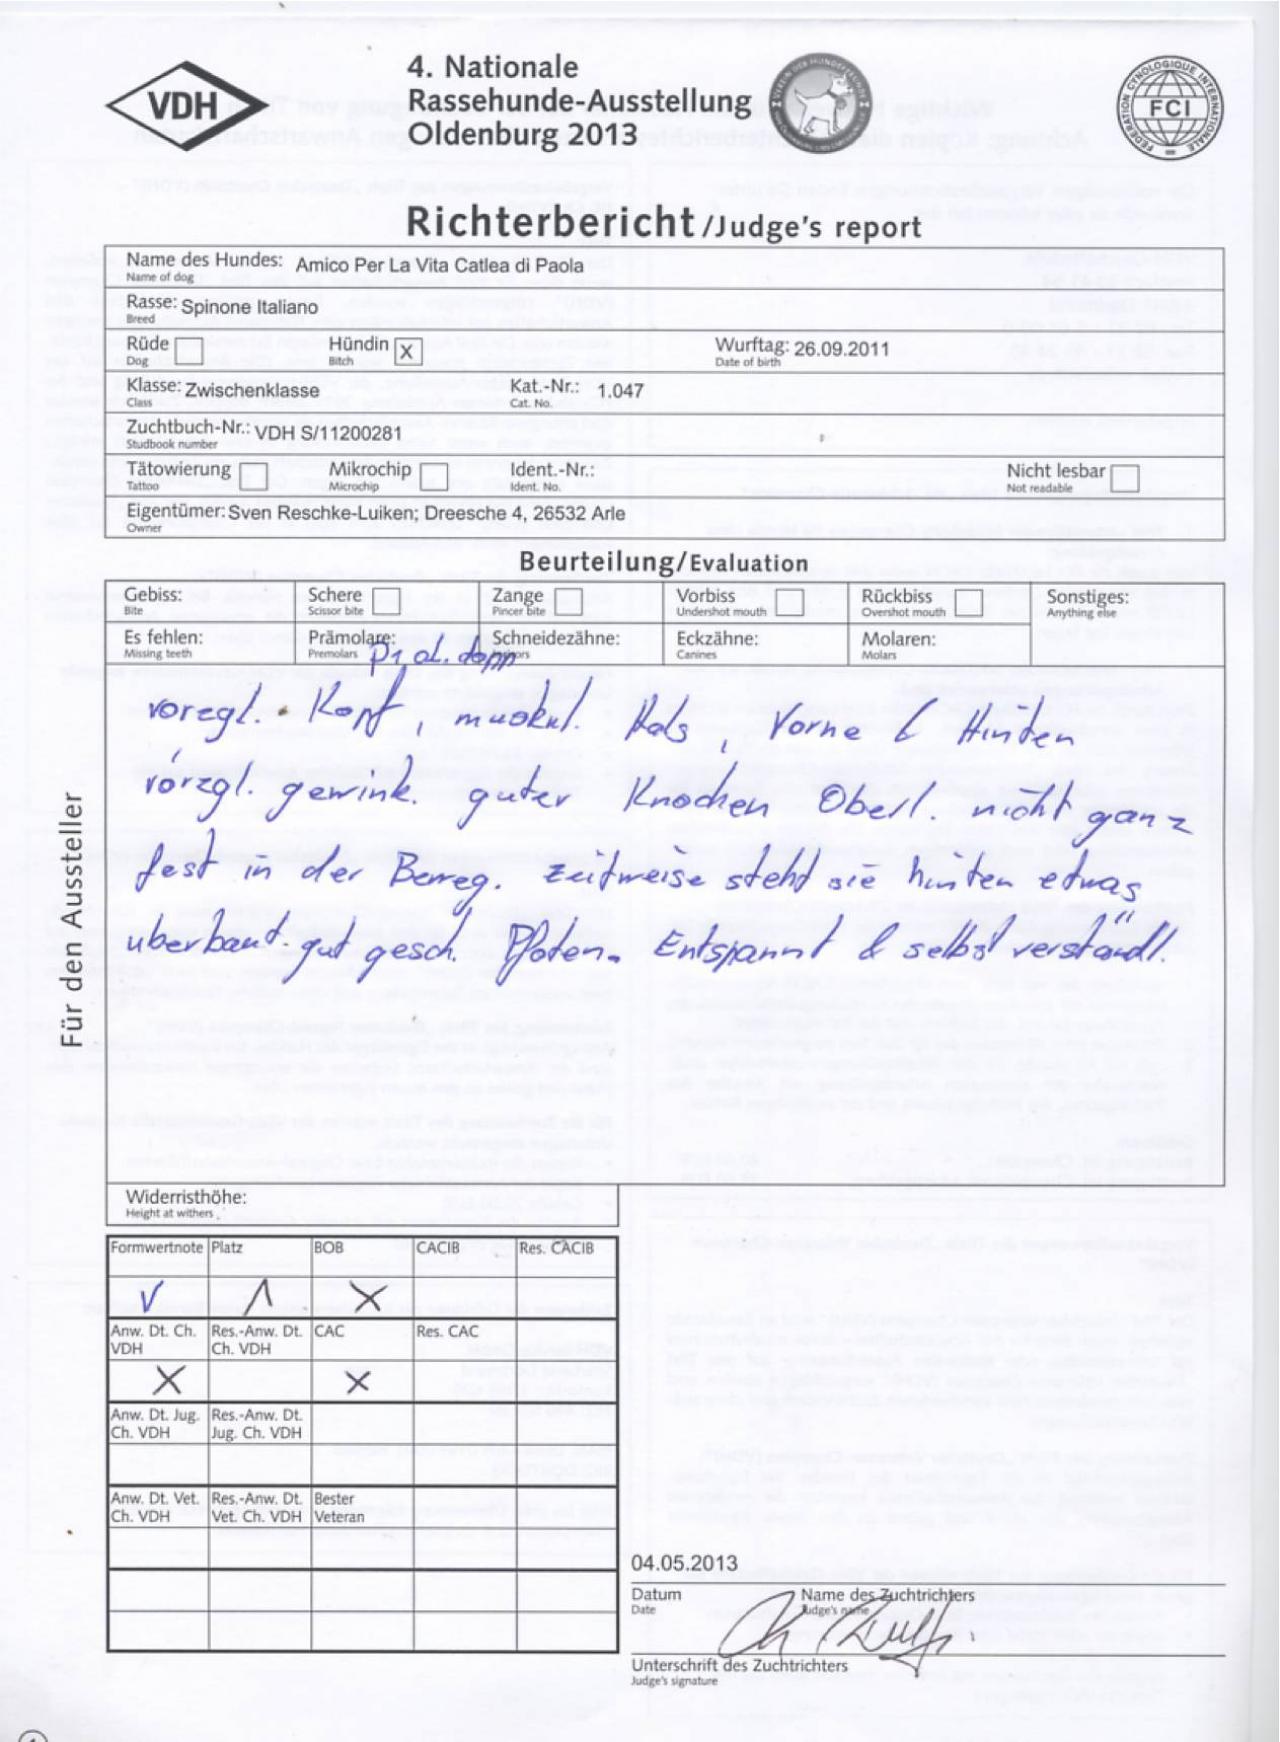 VDH
4. Nationale
Rassehunde-Ausstellung
Oldenburg 2013
FEDERATION CYNOLOGIQUE INTERNATIONALE
FCI
Richterbericht/Judge's report
Name des Hundes: Amico Per La Vita Catlea di Paola
Name of dog
Rasse: Spinone Italiano
Breed
Rüde Hündin X Wurftag: 26.09.2011
Dog Bitch Date of birth
Klasse: Zwischenklasse Kat.-Nr.: 1.047
Class Cat. No.
Zuchtbuch-Nr.: VDH S/11200281
Studbook number
Tätowierung Mikrochip Ident.-Nr.: Nicht lesbar
Tattoo Microchip Ident. No. Not readable
Eigentümer: Sven Reschke-Luiken; Dreesche 4, 26532 Arle
Owner
Beurteilung/Evaluation
Gebiss: Schere Zange Vorbiss Rückbiss Sonstiges:
Bite Scissor bite Pincer bite Undershot mouth Overshot mouth Anything else
Es fehlen: Prämolare: Schneidezähne: Eckzähne: Molaren:
Missing teeth Premolars Canines Molars
P1 dopp
vorzgl. Kopf, muskul. Hals, Vorne & Hinten
vorzgl. gewink. guter Knochen Oberl. nicht ganz
fest in der Beweg. zeitweise steht sie hinten etwas
überbaut. gut gesch. Pfoten. Entspannt & selbstverständl.
Für den Aussteller
Widerristhöhe:
Height at withers
Formwertnote Platz BOB CACIB Res. CACIB
V 1 X
Anw. Dt. Ch. Res.-Anw. Dt. CAC Res. CAC
VDH Ch. VDH
X X
Anw. Dt. Jug. Res.-Anw. Dt.
Ch. VDH Jug. Ch. VDH
Anw. Dt. Vet. Res.-Anw. Dt. Bester
Ch. VDH Vet. Ch. VDH Veteran
04.05.2013
Datum Name des Zuchtrichters
Date Judge's name
Unterschrift des Zuchtrichters
Judge's signature